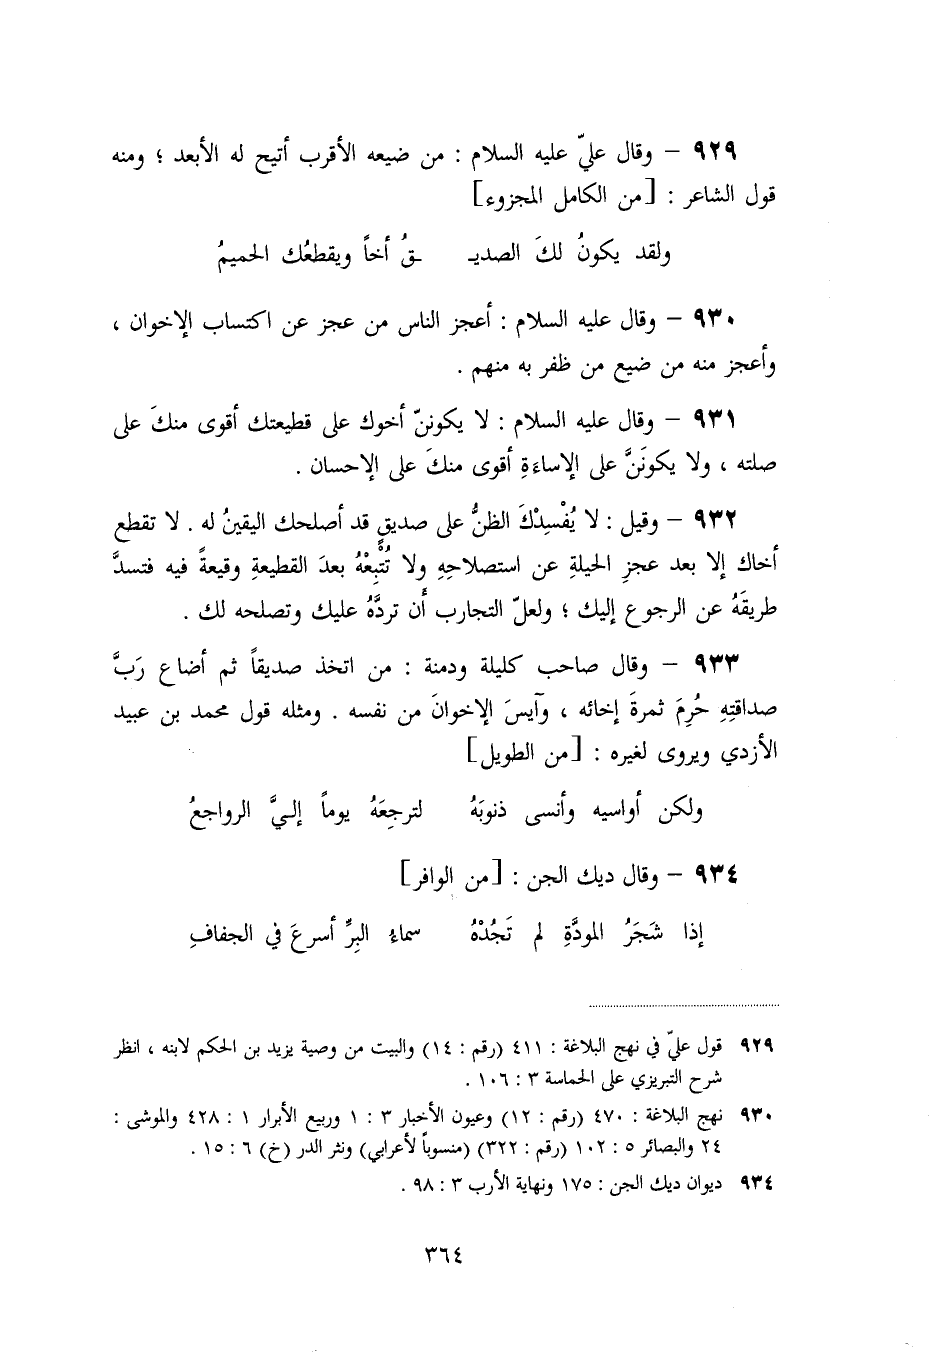 ٩٢٩ – وقال عليّ عليه السلام : من ضيعه الأقرب أتيح له الأبعد ؛ ومنه
قول الشاعر : [من الكامل المجزوء]
ولقد يكونُ لكَ الصديـ ـقُ أخاً ويقطعُك الحميمُ
٩٣٠ – وقال عليه السلام : أعجز الناس من عجز عن اكتساب الإخوان ،
وأعجز منه من ضيع من ظفر به منهم .
٩٣١ – وقال عليه السلام : لا يكوننّ أخوك على قطيعتك أقوى منكَ على
صلته ، ولا يكونَنَّ على الإساءَةِ أقوى منكَ على الإحسان .
٩٣٢ – وقيل : لا يُفْسِدْكَ الظنُّ على صديقٍ قد أصلحك اليقينُ له . لا تقطع
أخاك إلا بعد عجزِ الحيلةِ عن استصلاحِهِ ولا تُتْبِعْهُ بعدَ القطيعةِ وقيعةً فيه فتسدَّ
طريقَهُ عن الرجوع إليك ؛ ولعلّ التجارب أن تردَّهُ عليك وتصلحه لك .
٩٣٣ – وقال صاحب كليلة ودمنة : من اتخذ صديقاً ثم أضاع رَبَّ
صداقتِهِ حُرِمَ ثمرةَ إخائه ، وآيسَ الإخوانَ من نفسه . ومثله قول محمد بن عبيد
الأزدي ويروى لغيره : [من الطويل]
ولكن أواسيه وأنسى ذنوبَهُ لترجِعَهُ يوماً إليَّ الرواجعُ
٩٣٤ – وقال ديك الجن : [من الوافر]
إذا شَجَرُ المودَّةِ لم تَجُدْهُ سماءُ البِرِّ أسرعَ في الجفافِ
٩٢٩ قول عليّ في نهج البلاغة : ٤١١ (رقم : ١٤) والبيت من وصية يزيد بن الحكم لابنه ، انظر
شرح التبريزي على الحماسة ٣ : ١٠٦ .
٩٣٠ نهج البلاغة : ٤٧٠ (رقم : ١٢) وعيون الأخبار ٣ : ١ وربيع الأبرار ١ : ٤٢٨ والموشى :
٢٤ والبصائر ٥ : ١٠٢ (رقم : ٣٢٢) (منسوباً لأعرابي) ونثر الدر (خ) ٦ : ١٥ .
٩٣٤ ديوان ديك الجن : ١٧٥ ونهاية الأرب ٣ : ٩٨ .
٣٦٤